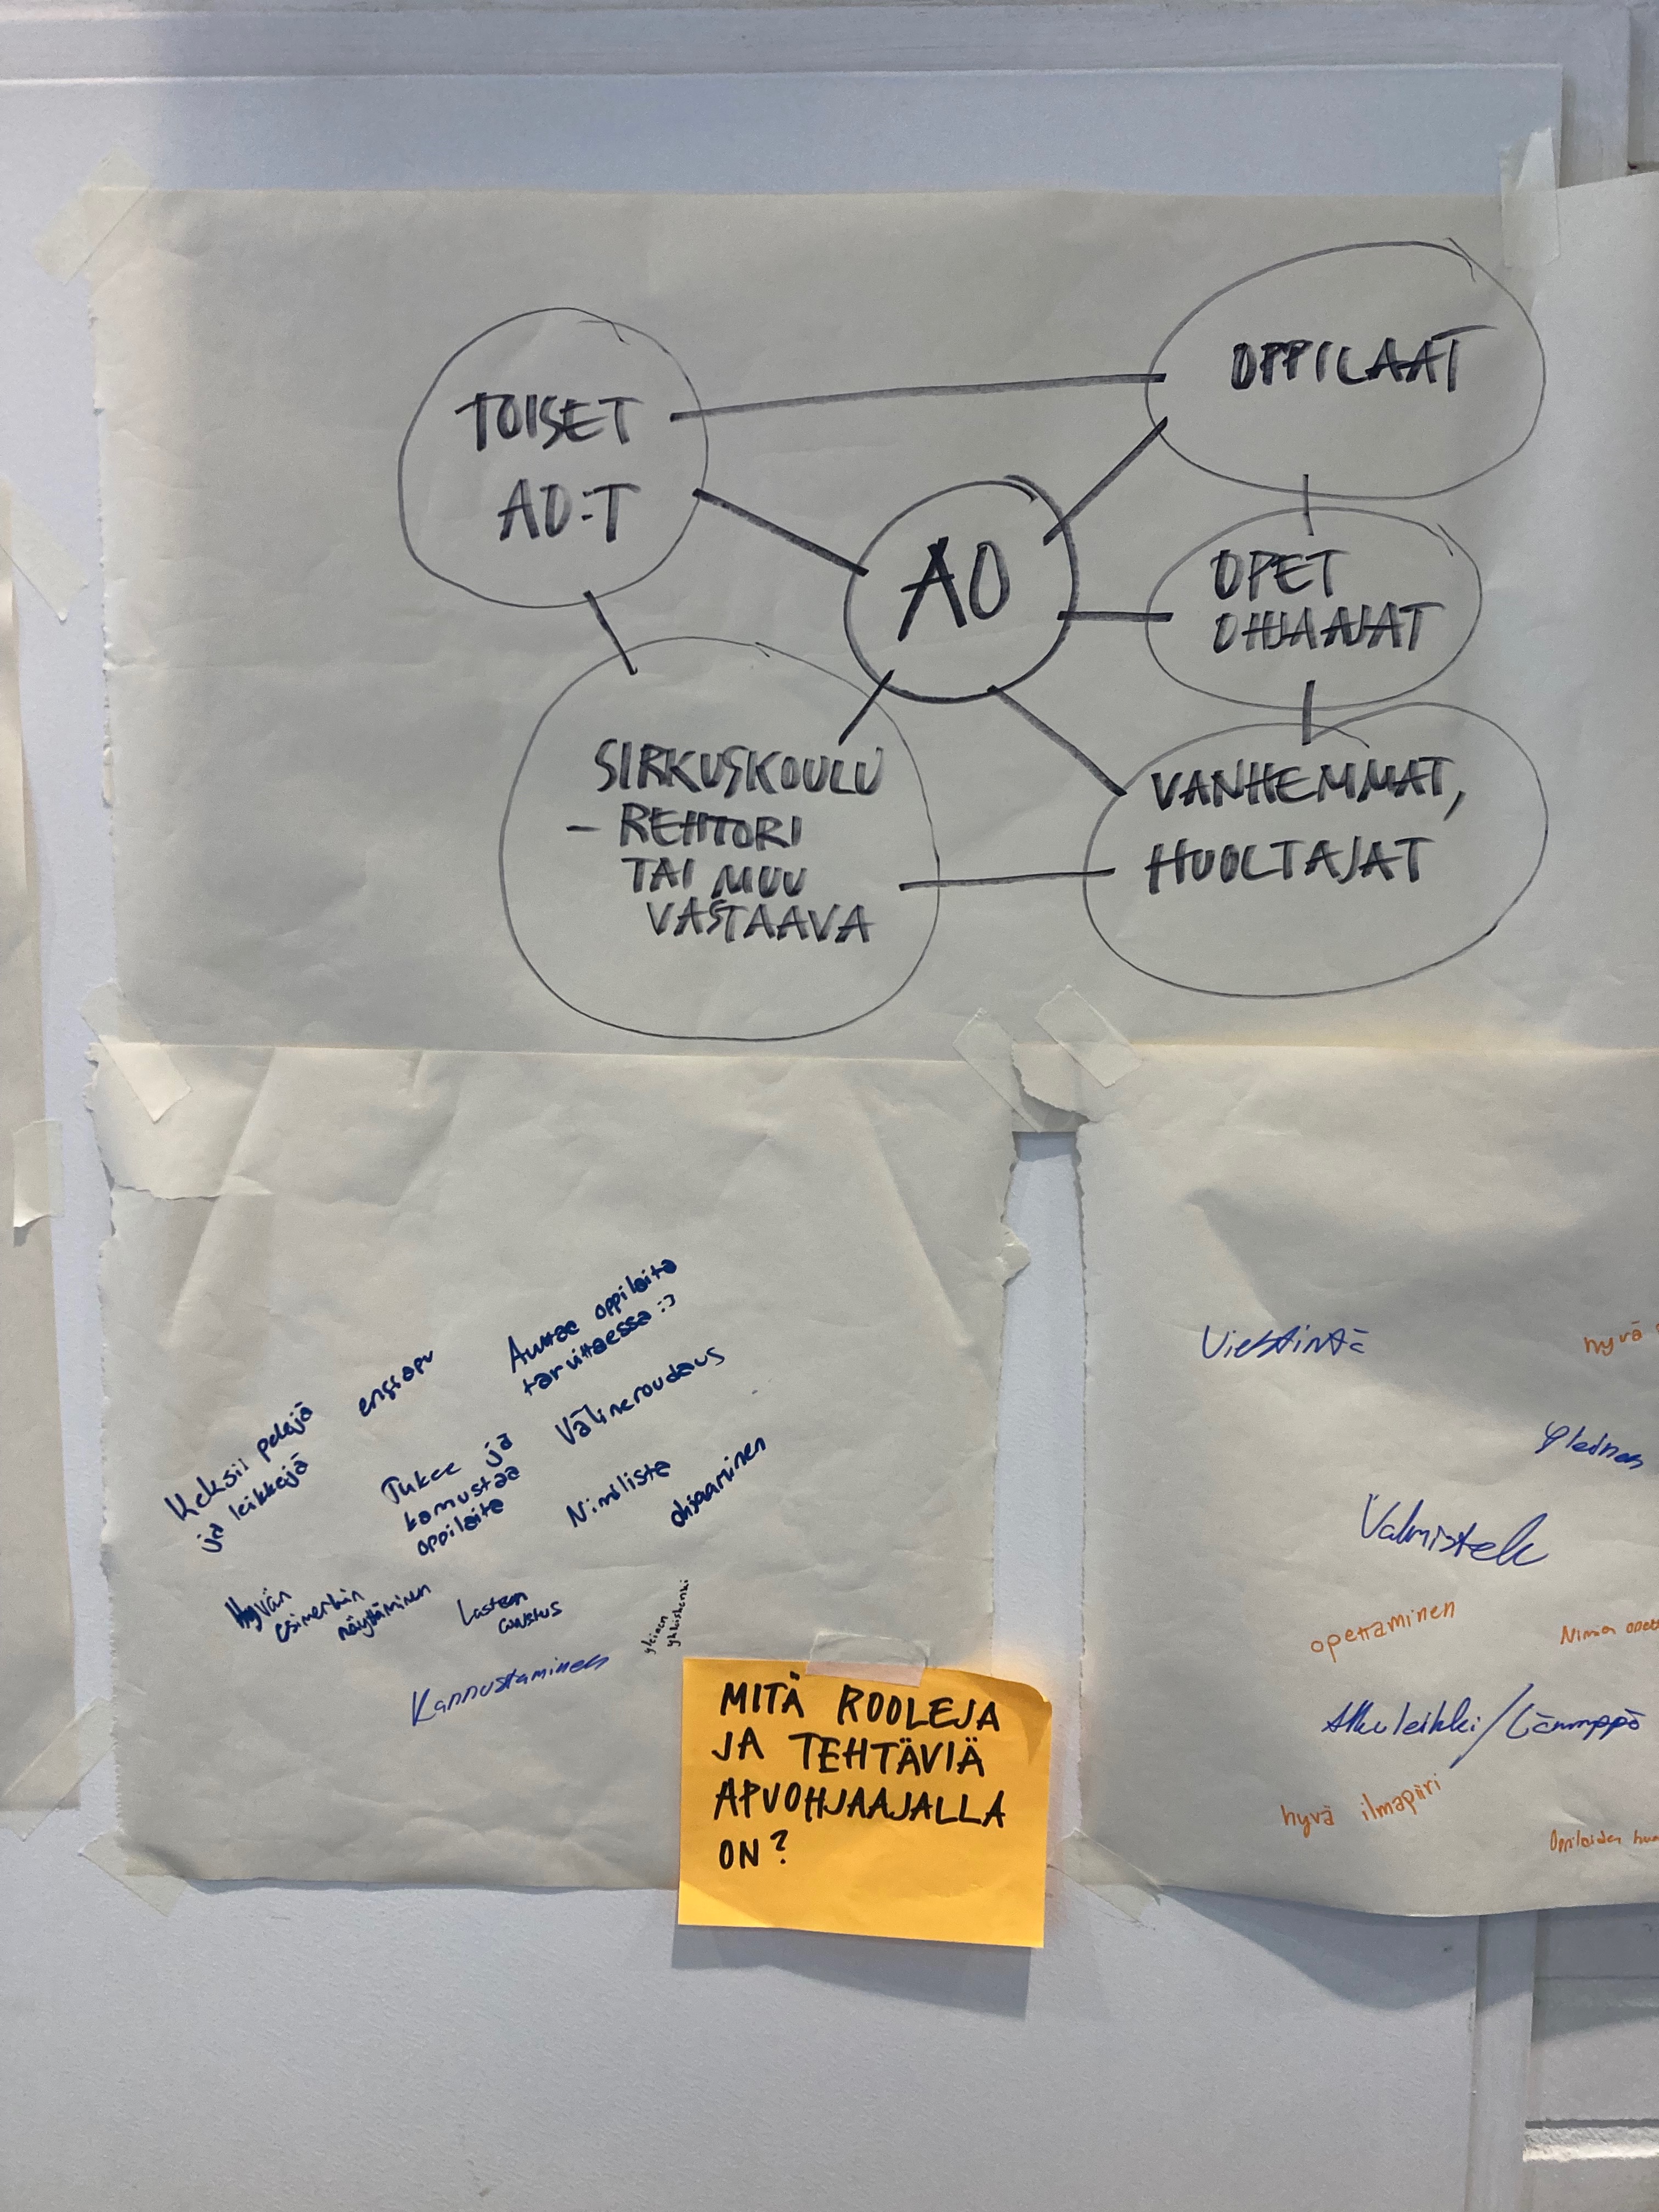 TOISET
AO:T
OPPILAAT
AO
OPET
OHJAAJAT
SIRKUSKOULU
- REHTORI
TAI MUU
VASTAAVA
VANHEMMAT,
HUOLTAJAT
Keksii pelejä
ja leikkejä
ensiapu
Auttaa oppilaita
tarvittaessa :)
Tukee ja
kannustaa
oppilaita
Välineroudaus
Nimilista
ohjaaminen
Hyvän
esimerkin
näyttäminen
Lasten
avustus
Kannustaminen
yleinen
MITÄ ROOLEJA
JA TEHTÄVIÄ
APUOHJAAJALLA
ON?
Viestintä
hyvä
Yleinen
Valmistelu
opettaminen
Alkuleikki/Lämppä
hyvä ilmapiiri
Oppilaiden